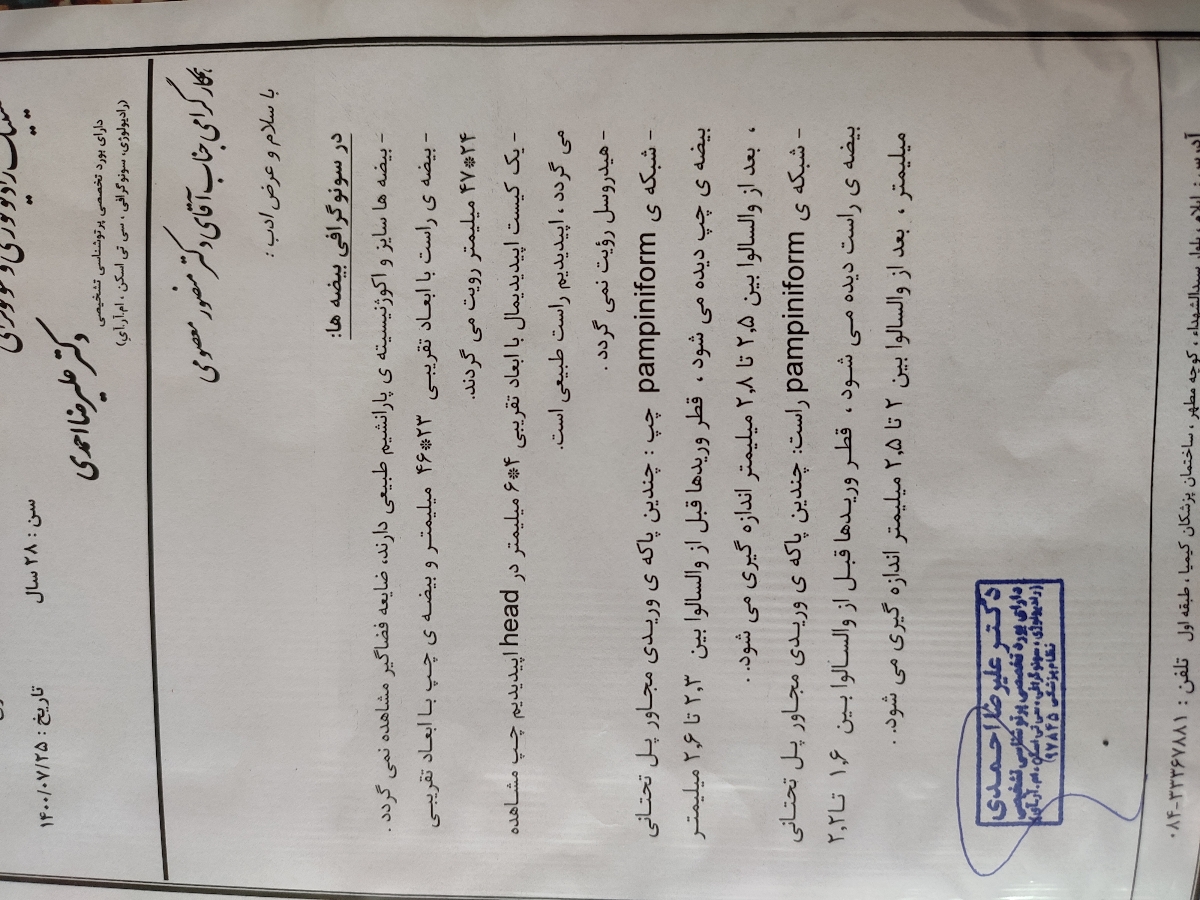 دکتر علیرضا احمدی
دارای بورد تخصصی پرتوشناسی تشخیصی
(رادیولوژی، سونوگرافی ، سی تی اسکن ، ام.آر.آی)
سن : ۲۸ سال
تاریخ : ۱۴۰۰/۰۷/۲۵
همکار گرامی جناب آقای دکتر منصور معصومی
با سلام و عرض ادب :
در سونوگرافی بیضه ها:
- بیضه ها سایز و اکوژنیسیته ی پارانشیم طبیعی دارند، ضایعه فضاگیر مشاهده نمی گردد .
- بیضه ی راست با ابعاد تقریبی ۲۳*۴۶ میلیمتر و بیضه ی چپ با ابعاد تقریبی
۲۴*۴۷ میلیمتر رویت می گردند.
- یک کیست اپیدیدیمال با ابعاد تقریبی ۴*۶ میلیمتر در head اپیدیدیم چپ مشاهده
می گردد ، اپیدیدیم راست طبیعی است.
- هیدروسل رؤیت نمی گردد .
- شبکه ی pampiniform چپ : چندین پاکه ی وریدی مجاور پل تحتانی
بیضه ی چپ دیده می شود ، قطر وریدها قبل از والسالوا بین ۲,۳ تا ۲,۶ میلیمتر
، بعد از والسالوا بین ۲,۵ تا ۲,۸ میلیمتر اندازه گیری می شود. .
- شبکه ی pampiniform راست: چندین پاکه ی وریدی مجاور پل تحتانی
بیضه ی راست دیده می شود ، قطر وریدها قبل از والسالوا بین ۱,۶ تا ۲,۲
میلیمتر ، بعد از والسالوا بین ۲ تا ۲,۵ میلیمتر اندازه گیری می شود. .
دکتر علیرضا احمدی
دارای بورد تخصصی پرتوشناسی تشخیصی
(رادیولوژی، سونوگرافی، سی تی اسکن، ام.آر.آی)
نظام پزشکی ۹۷۸۴۵
آدرس : ایلام ، بلوار سیدالشهداء ، کوچه مطهر ، ساختمان پزشکان کیمیا ، طبقه اول تلفن : ۳۳۳۶۷۸۸۱-۰۸۴